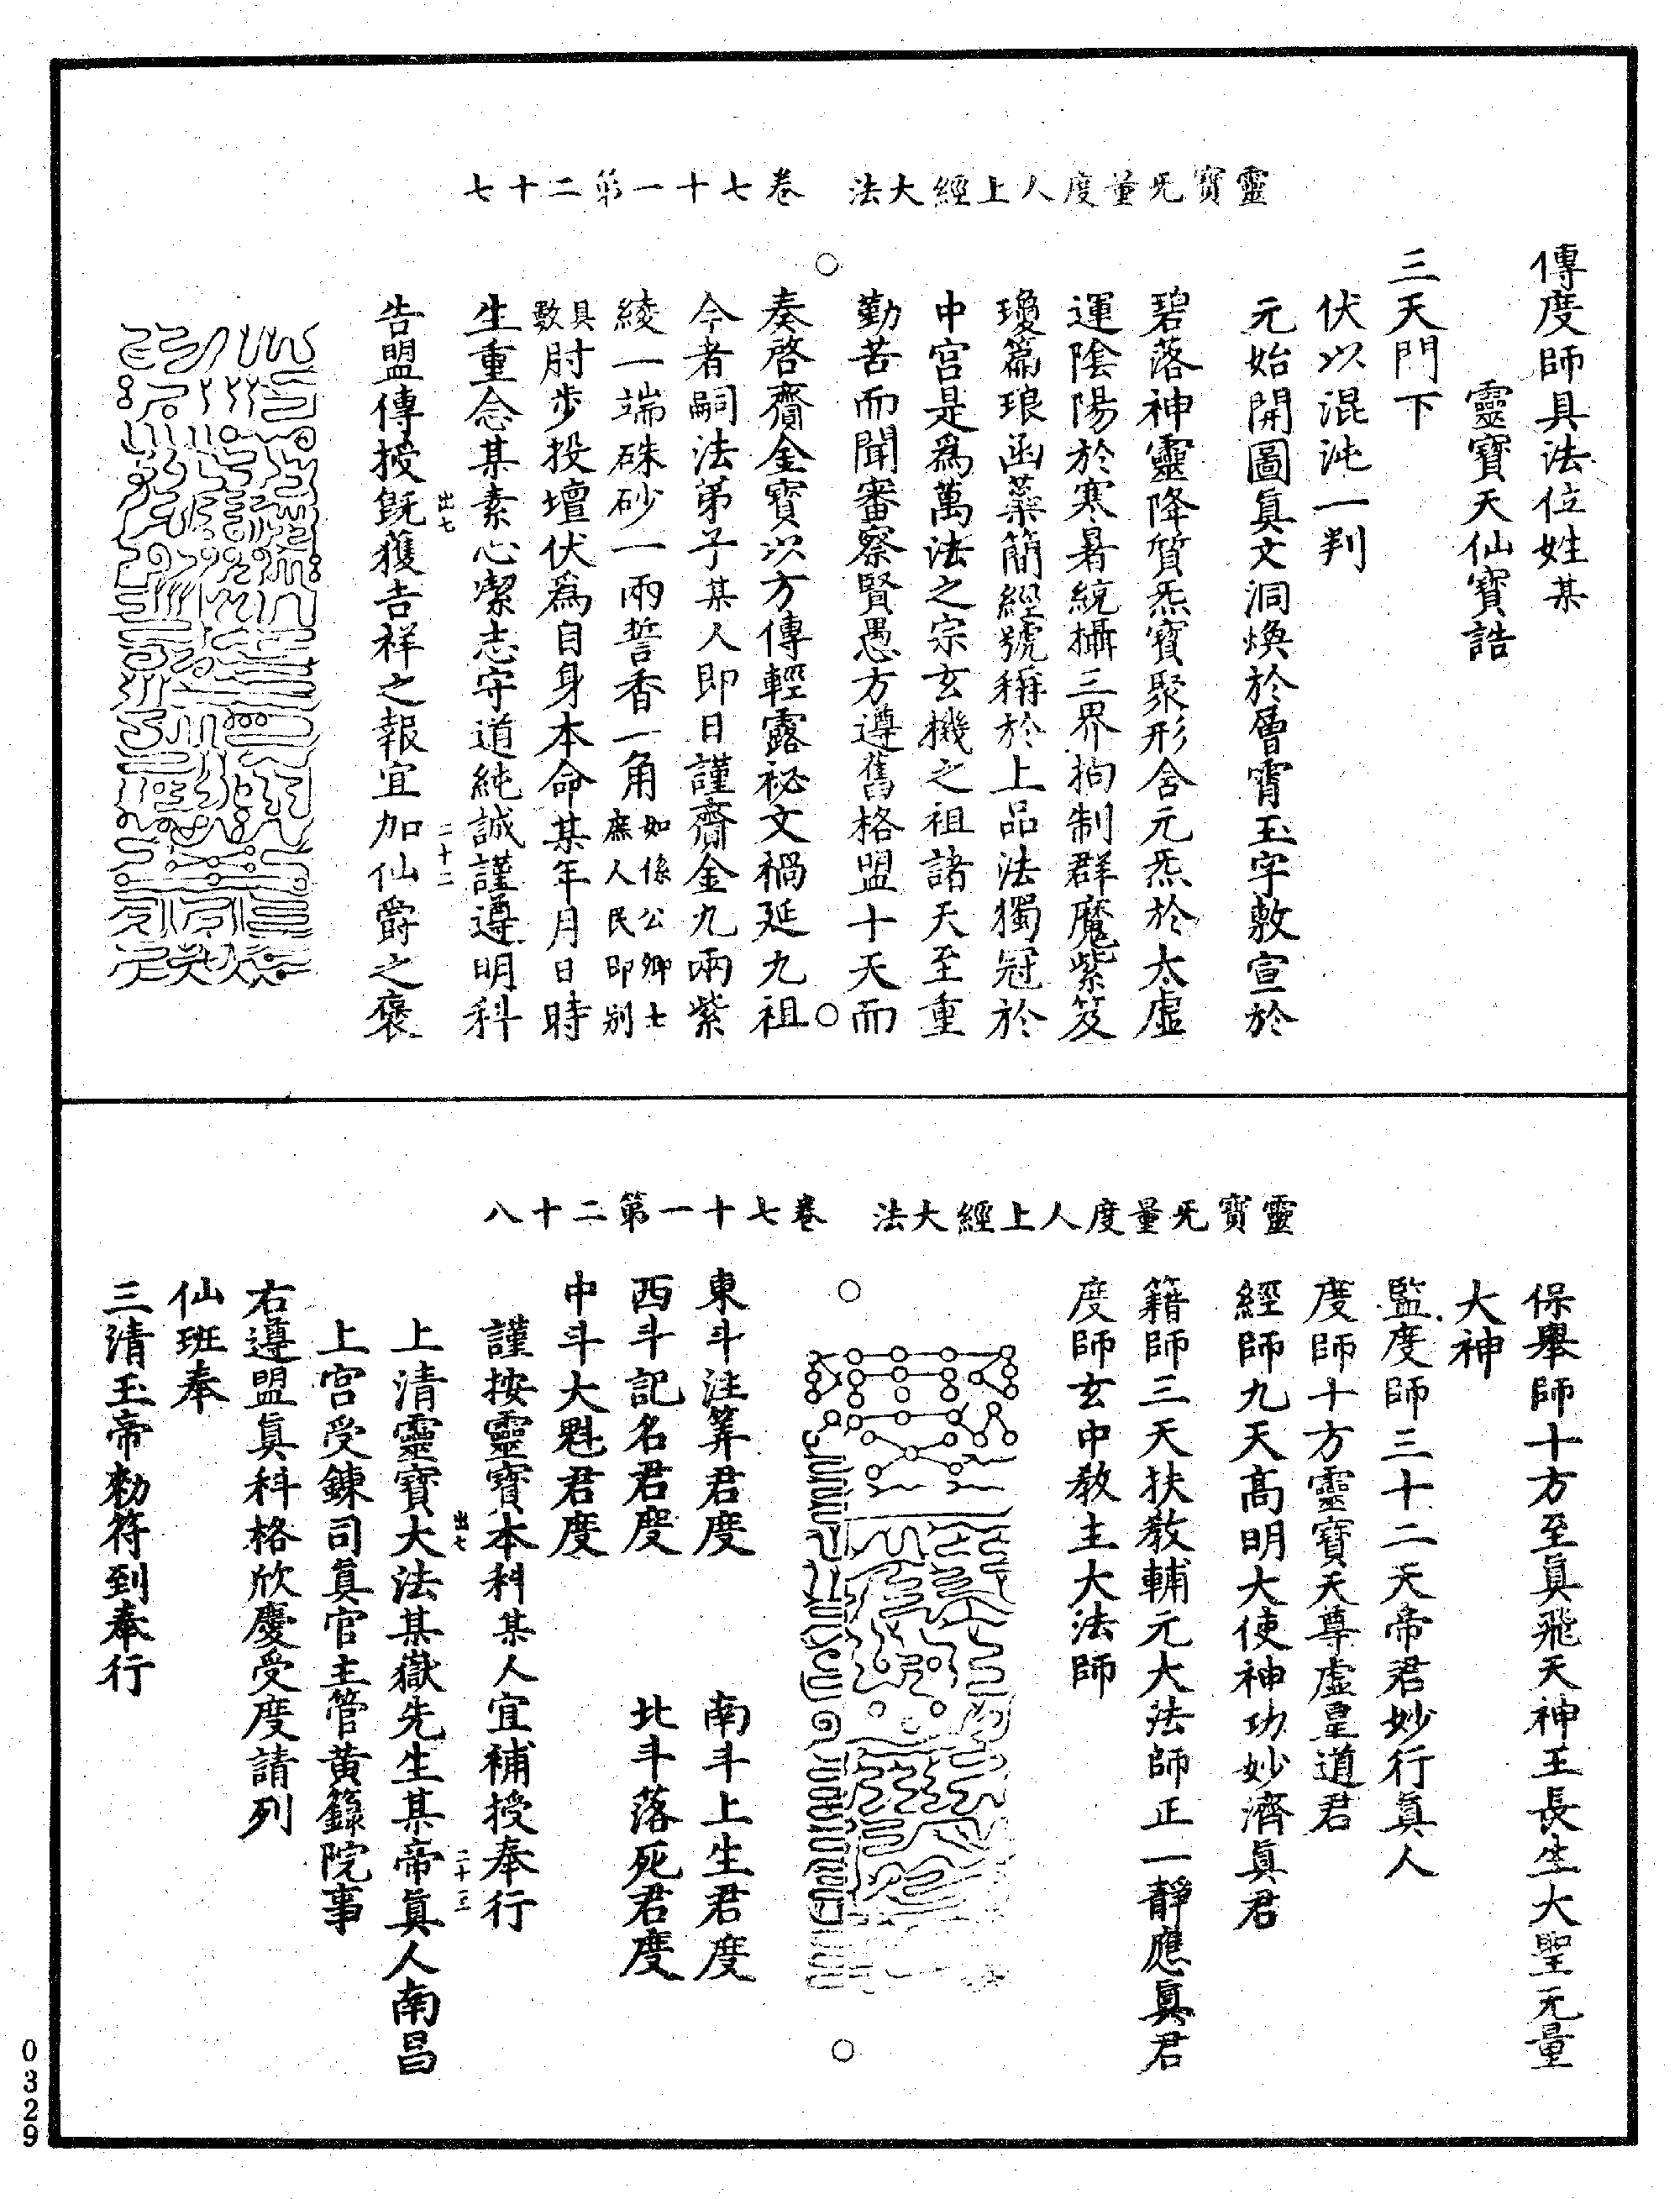 靈寳无量度人上經大法　卷七十一第二十七
傳度師具法位姓某
靈寳天仙寳誥
三天門下
伏以混沌一判
元始開圖真文洞煥於層霄玉字敷宣於
碧落神靈降質炁寳聚形含元炁於太虛
運陰陽於寒暑統攝三界拘制群魔紫笈
瓊篇琅函蘂簡經號稱於上品法獨冠於
中宫是為萬法之宗玄機之祖諸天至重
勤苦而聞審察賢愚方遵舊格盟十天而
奏啓齎金寳以方傳輕露祕文禍延九祖
今者嗣法弟子某人即日謹齎金九兩紫
綾一端硃砂一兩誓香一角如係公卿士庶人民即别
具數肘步投壇伏為自身本命某年月日時
生重念某素心潔志守道純誠謹遵明科
出七　二十二
告盟傳授既獲吉祥之報宜加仙爵之褒
靈寳无量度人上經大法　卷七十一第二十八
保舉師十方至真飛天神王長生大聖无量
大神
監度師三十二天帝君妙行真人
度師十方靈寳天尊虛皇道君
經師九天高明大使神功妙濟真君
籍師三天扶教輔元大法師正一靜應真君
度師玄中教主大法師
東斗注筭君度　南斗上生君度
西斗記名君度　北斗落死君度
中斗大魁君度
謹按靈寳本科某人宜補授奉行
出七　二十三
上清靈寳大法某嶽先生某帝真人南昌
上宫受錬司真官主管黄籙院事
右遵盟真科格欣慶受度請列
仙班奉
三清玉帝勑符到奉行
0329